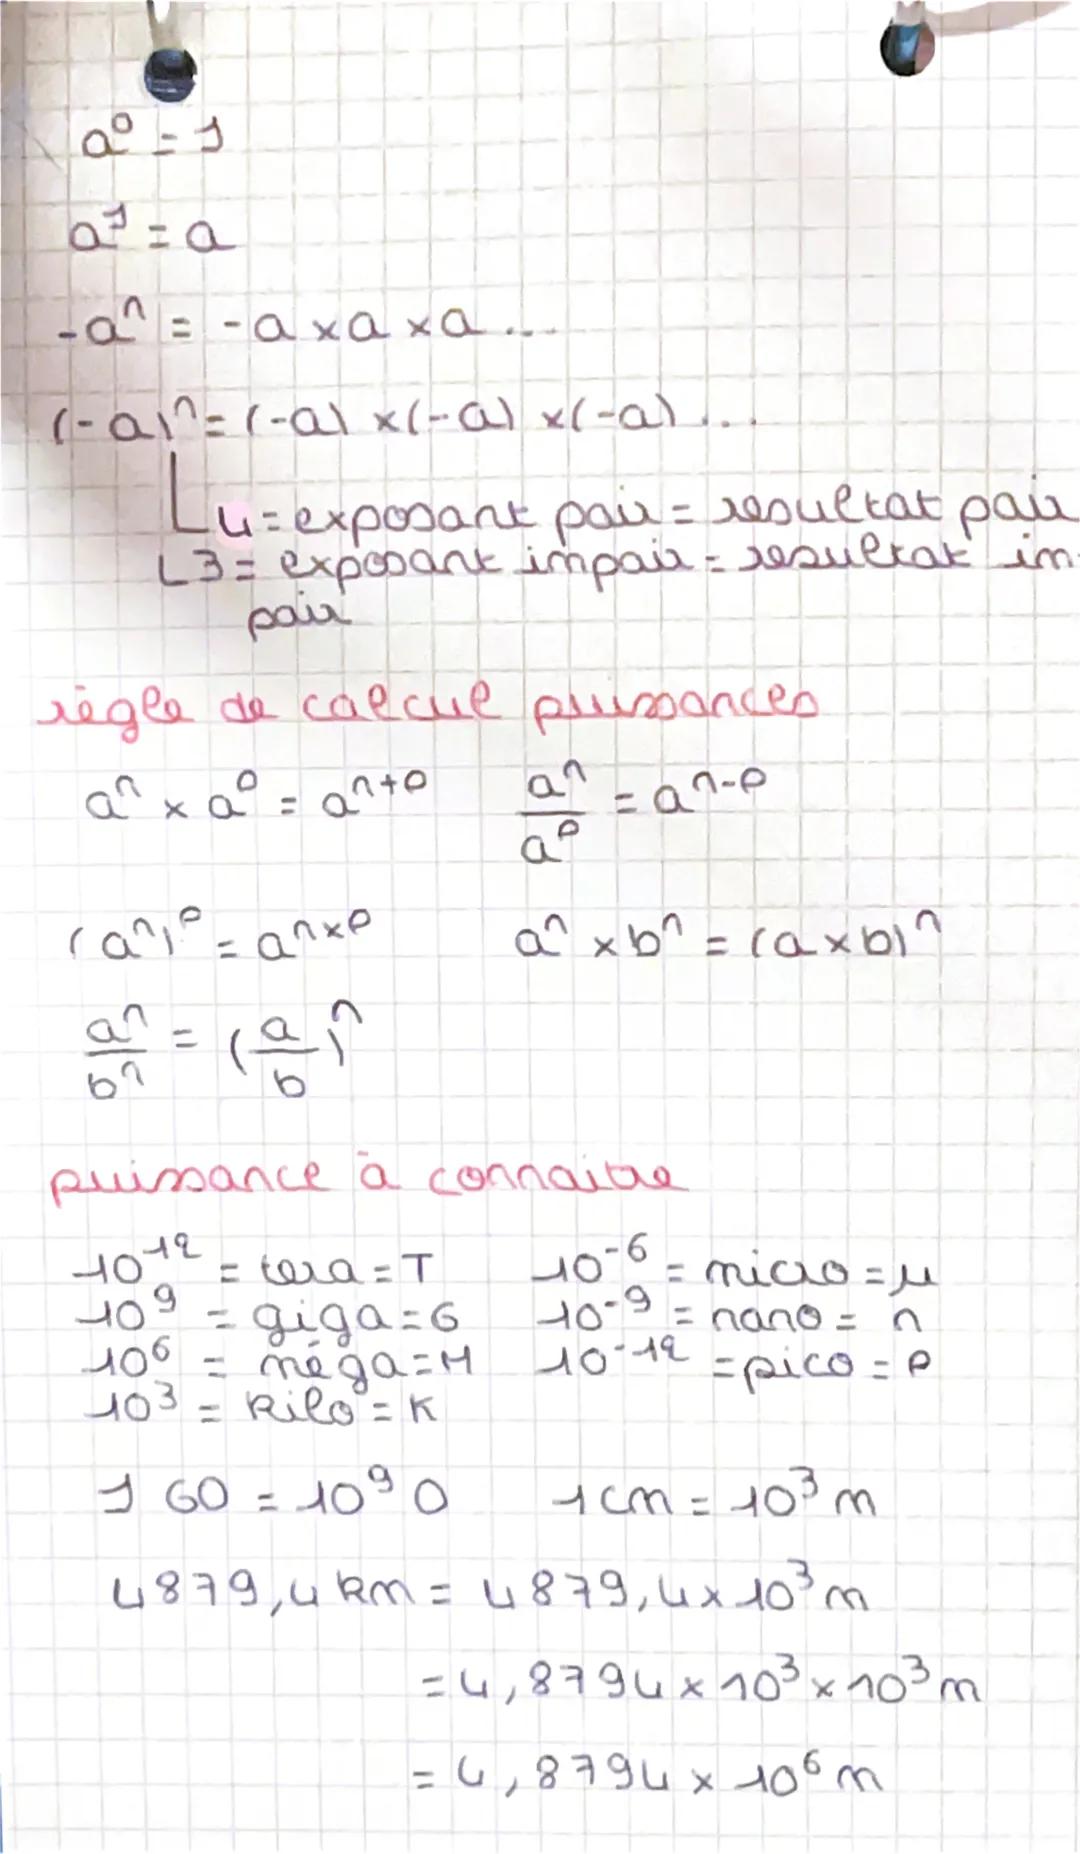 a⁰ = 1
a¹ = a
-aⁿ = -a x a x a ...
(-a)ⁿ = (-a) x (-a) x (-a) ...
4 = exposant pair = resultat pair
3 = exposant impair = resultat im-
pair
règle de calcul puissances
aⁿ x aᵖ = aⁿ⁺ᵖ    aⁿ/aᵖ = aⁿ⁻ᵖ
(aⁿ)ᵖ = aⁿˣᵖ    aⁿ x bⁿ = (a x b)ⁿ
aⁿ/bⁿ = (a/b)ⁿ
puissance à connaitre
10⁻¹² = tera = T    10⁻⁶ = micro = μ
10⁹ = giga = G    10⁻⁹ = nano = n
10⁶ = méga = M    10⁻¹² = pico = p
10³ = kilo = K
1 GO = 10⁹ O    1 cm = 10³ m
4879,4 km = 4879,4 x 10³ m
= 4,8794 x 10³ x 10³ m
= 4,8794 x 10⁶ m